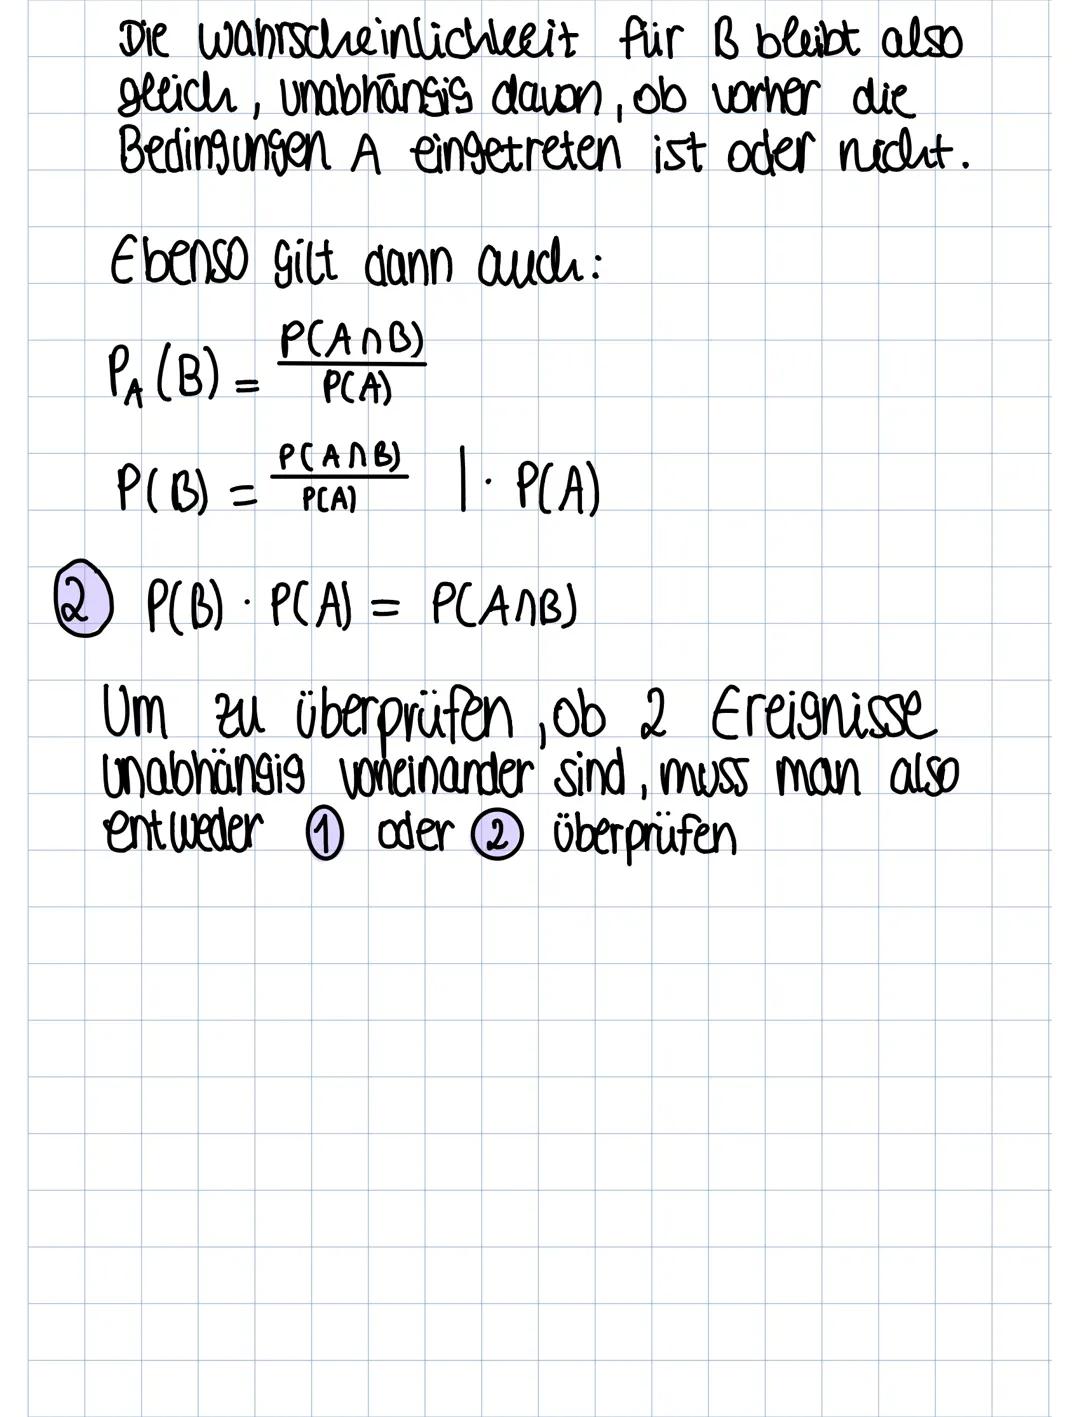 Die Wahrscheinlichkeit für B bleibt also
gleich, unabhängig davon, ob vorher die
Bedingungen A eingetreten ist oder nicht.
Ebenso gilt dann auch:
P_A(B) = P(A∩B) / P(A)
P(B) = P(A∩B) / P(A) | · P(A)
② P(B) · P(A) = P(A∩B)
Um zu überprüfen, ob 2 Ereignisse
unabhängig voneinander sind, muss man also
entweder ① oder ② überprüfen